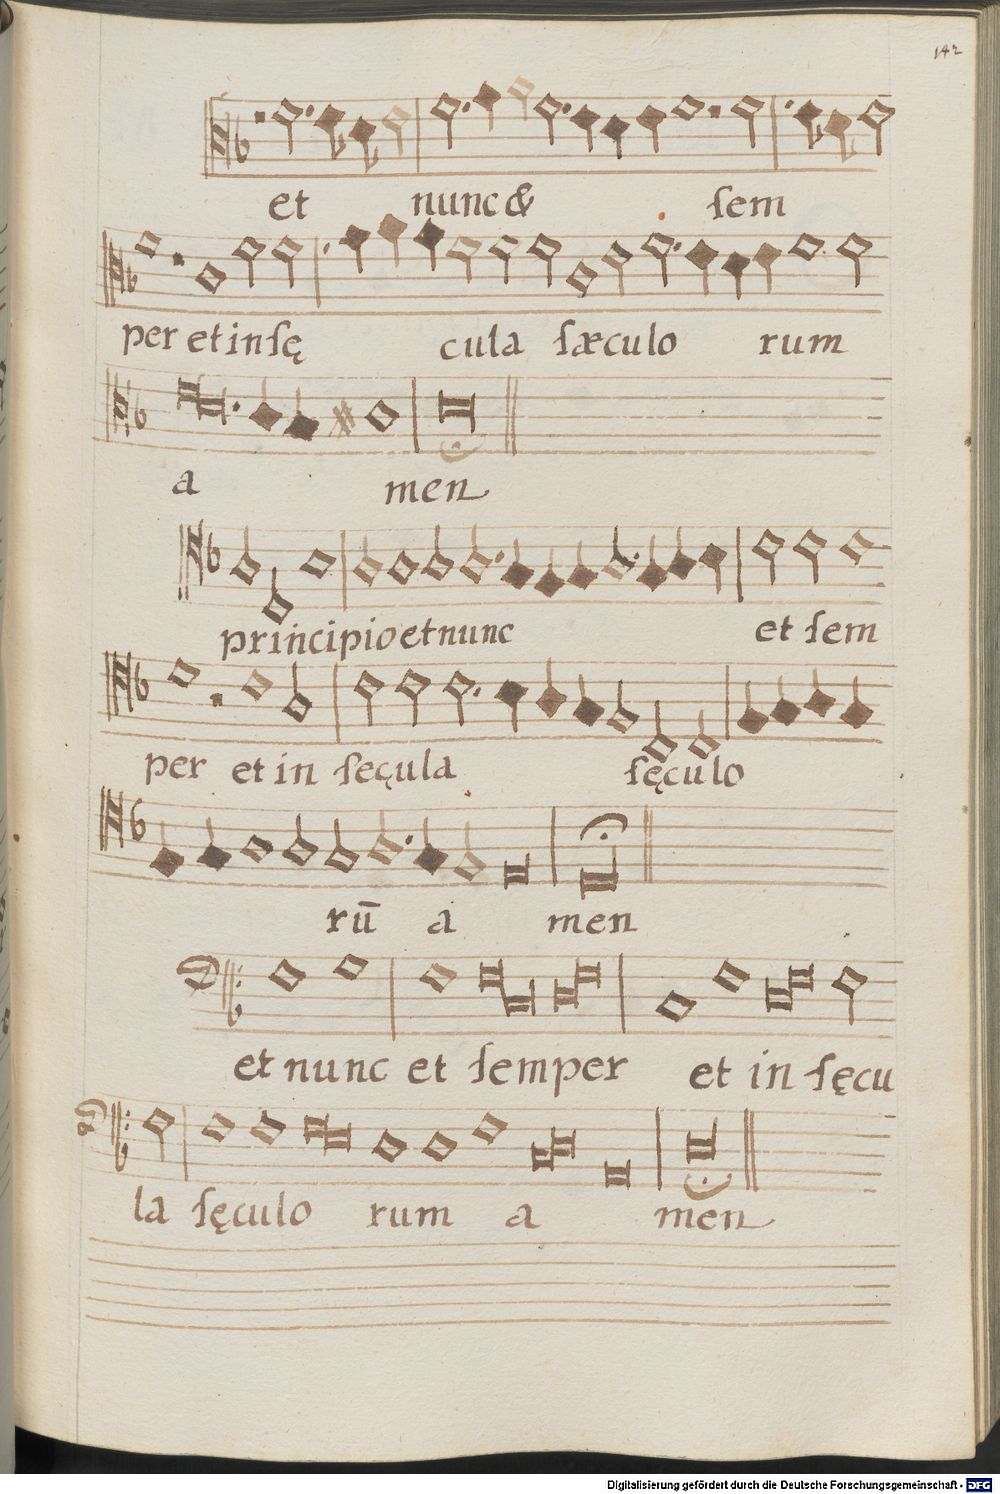 142
et nunc & ſem
per et in ſę cula ſæculo rum
a men
principio et nunc et ſem
per et in ſeçula ſęculo
rū a men
et nunc et ſemper et in ſęcu
la ſęculo rum a men
Digitalisierung gefördert durch die Deutsche Forschungsgemeinschaft - DFG